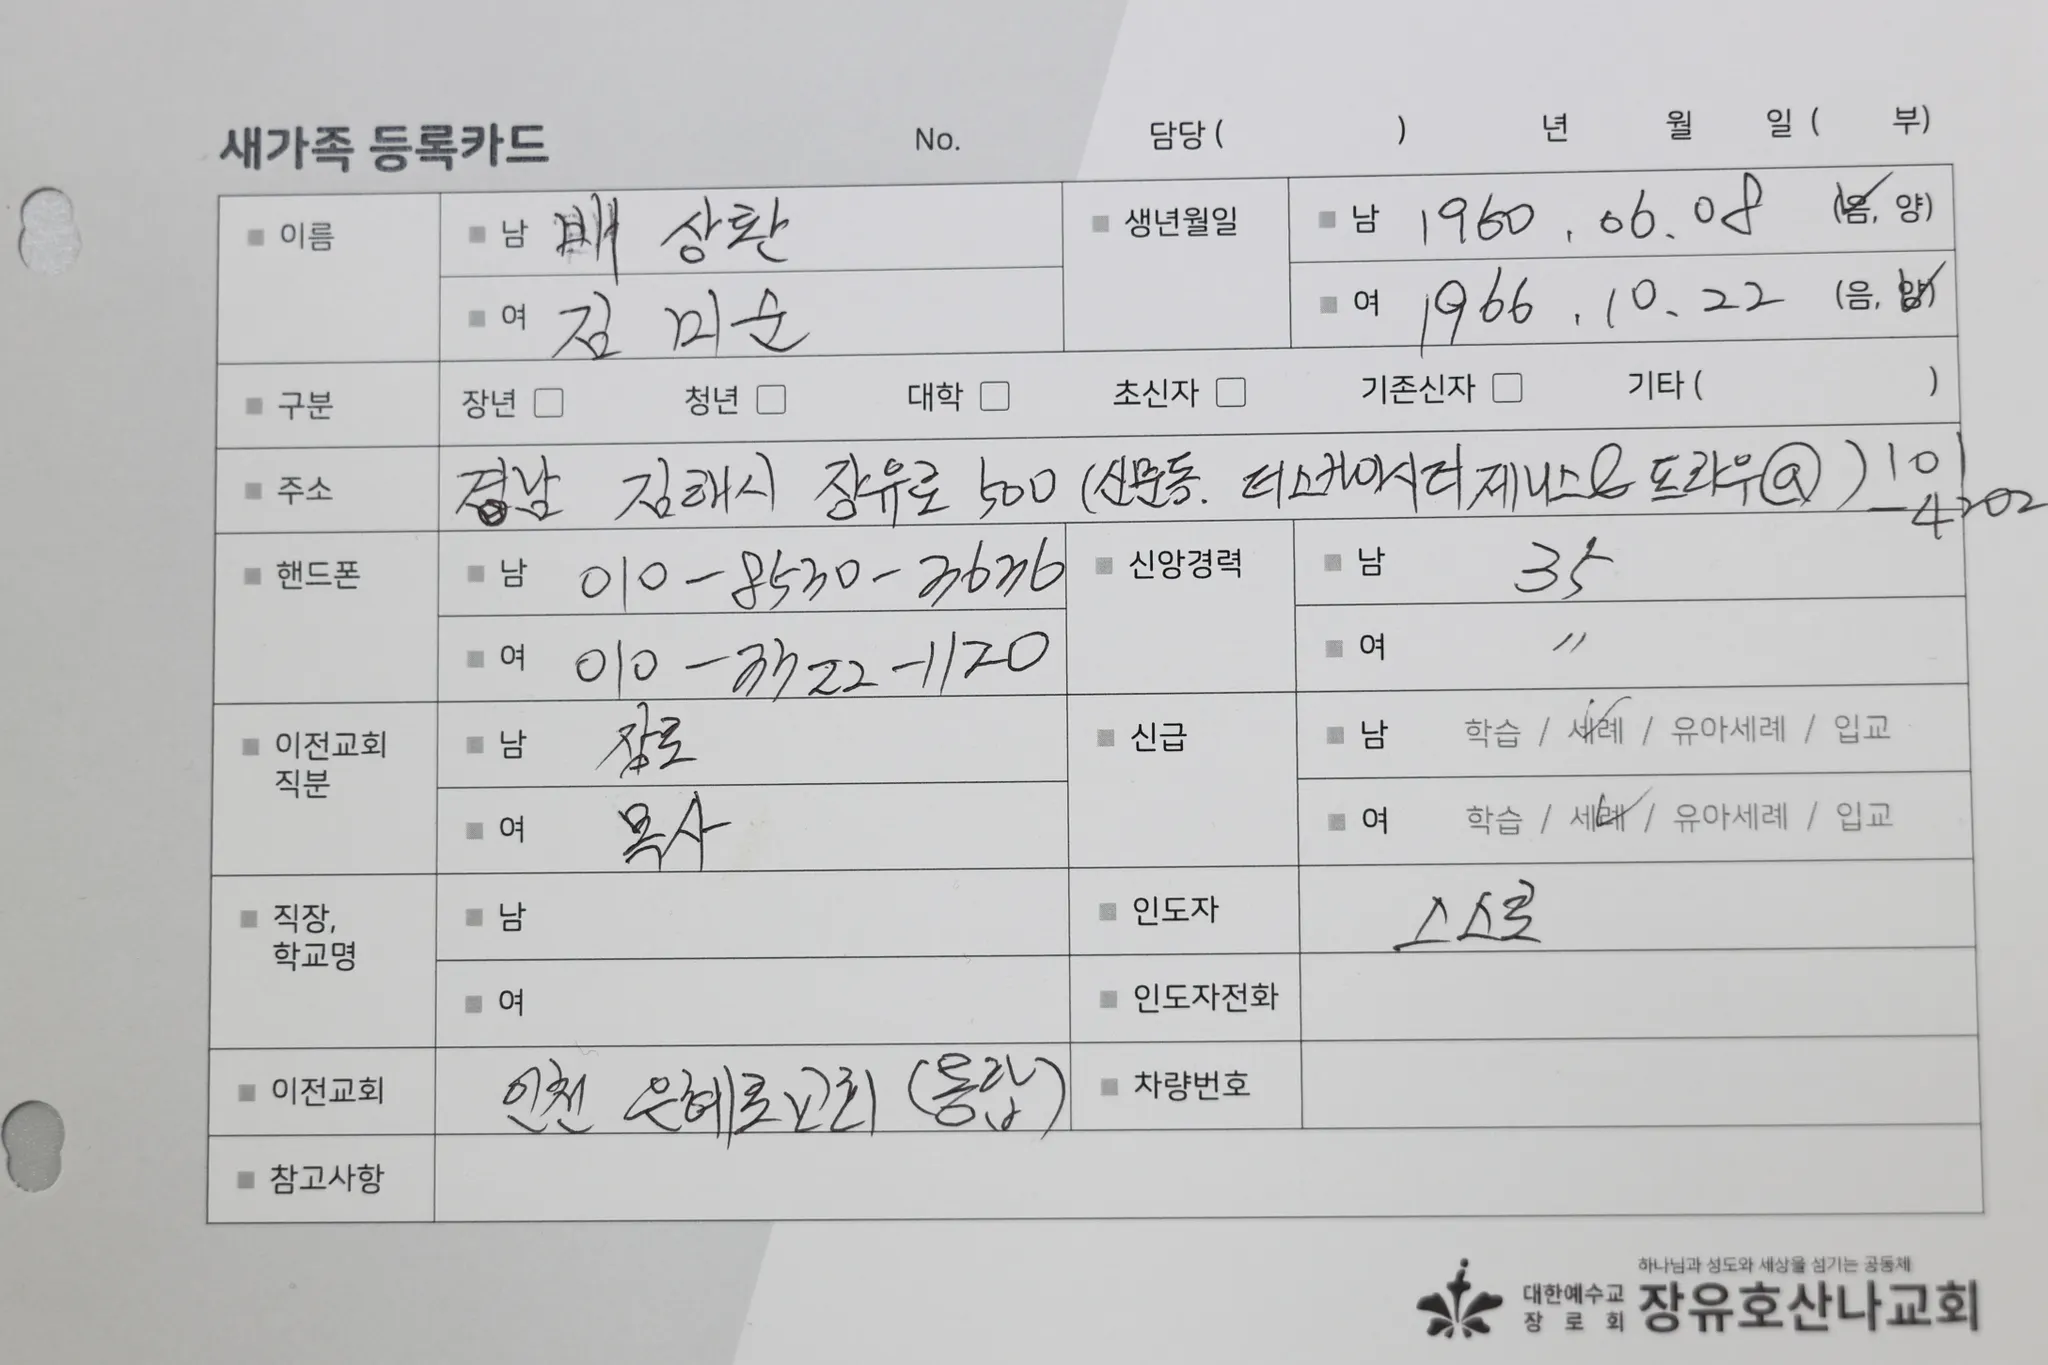 새가족 등록카드 No. 담당 ( ) 년 월 일 ( 부)
이름 남 배 상환 생년월일 남 1960.06.08 (음, 양)
여 김 미순 여 1966.10.22 (음, 양)
구분 장년 청년 대학 초신자 기존신자 기타 ( )
주소 경남 김해시 장유로 500 (신문동. 더스카이시티제니스&프라우@) 101
-4202
핸드폰 남 010-8530-3636 신앙경력 남 35
여 010-3522-1120 여 〃
이전교회 직분 남 장로 신급 남 학습 / 세례 / 유아세례 / 입교
여 목사 여 학습 / 세례 / 유아세례 / 입교
직장, 학교명 남 인도자 스스로
여 인도자전화
이전교회 인천 은혜로교회 (통합) 차량번호
참고사항
하나님과 성도와 세상을 섬기는 공동체
대한예수교 장로회 장유호산나교회